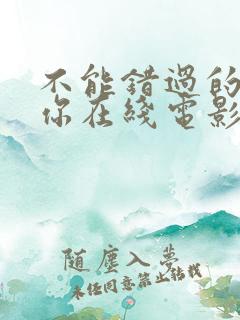 不能错過的
你在綫電影
随塵入夢
未经同意禁止转载